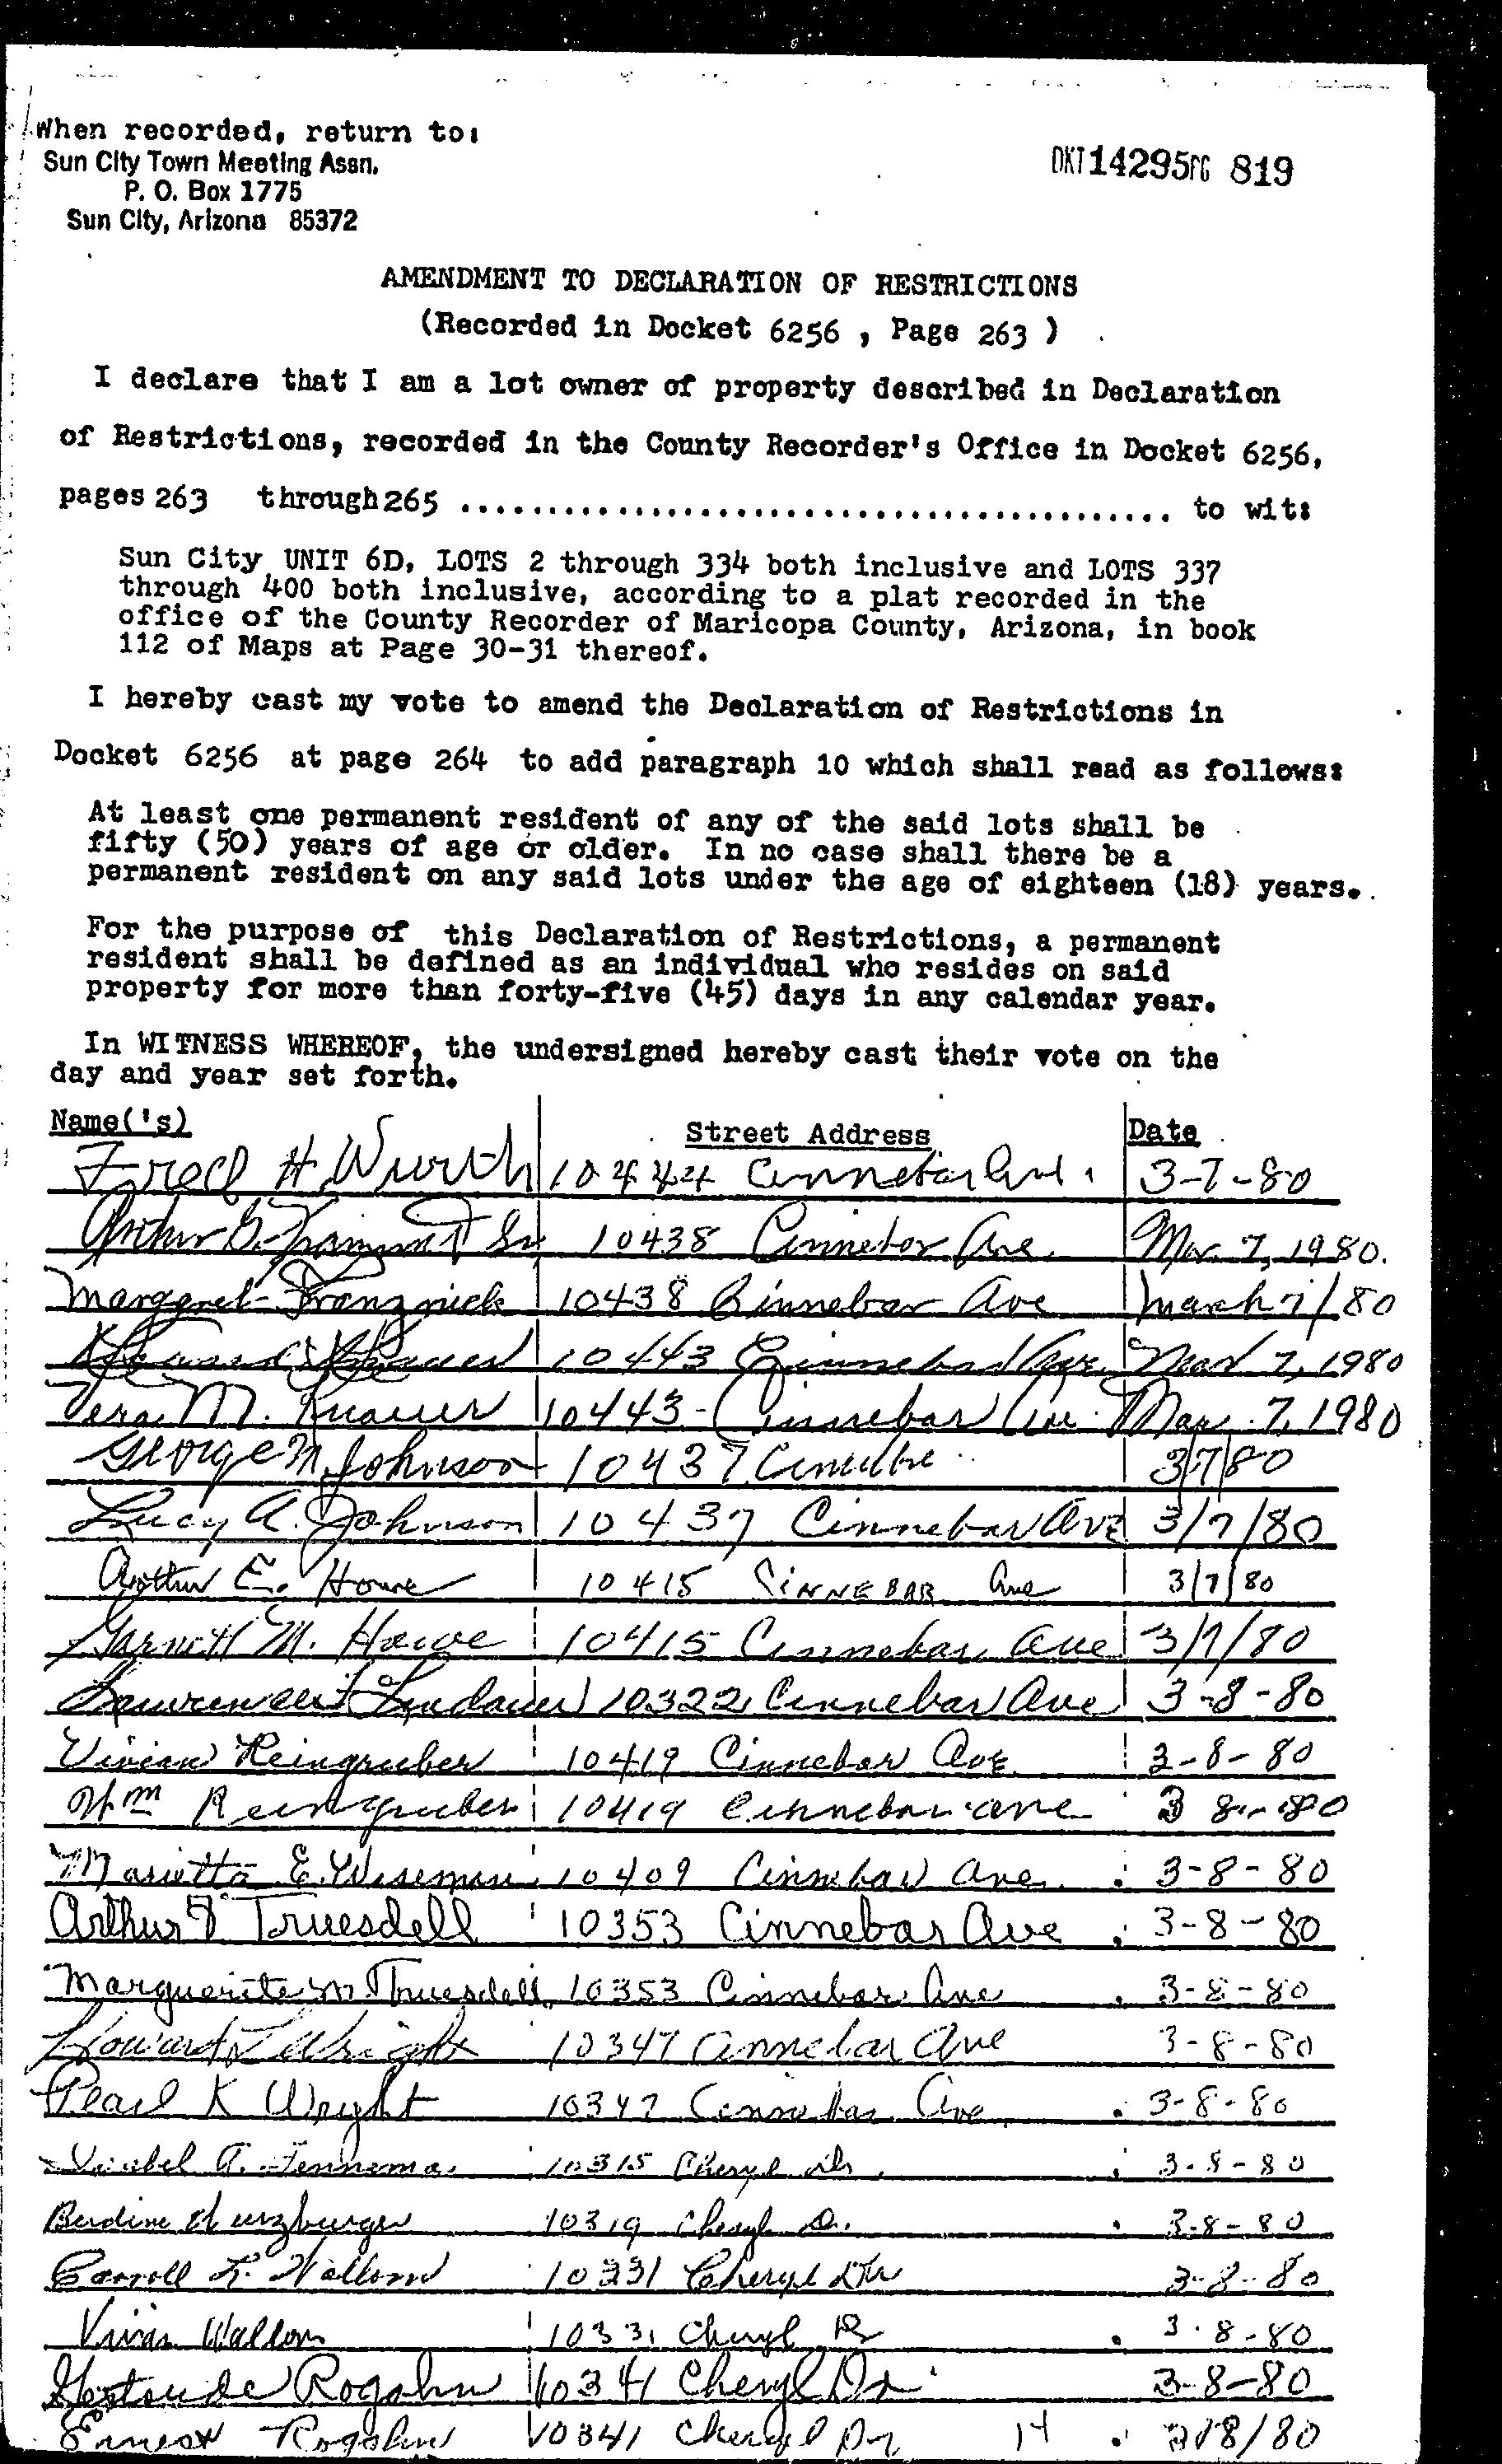 When recorded, return to:
Sun City Town Meeting Assn.
P. O. Box 1775
Sun City, Arizona 85372
DKT 14295 PG 819
AMENDMENT TO DECLARATION OF RESTRICTIONS
(Recorded in Docket 6256 , Page 263 )
I declare that I am a lot owner of property described in Declaration
of Restrictions, recorded in the County Recorder's Office in Docket 6256,
pages 263 through 265 ........................................... to wit:
Sun City UNIT 6D, LOTS 2 through 334 both inclusive and LOTS 337
through 400 both inclusive, according to a plat recorded in the
office of the County Recorder of Maricopa County, Arizona, in book
112 of Maps at Page 30-31 thereof.
I hereby cast my vote to amend the Declaration of Restrictions in
Docket 6256 at page 264 to add paragraph 10 which shall read as follows:
At least one permanent resident of any of the said lots shall be
fifty (50) years of age or older. In no case shall there be a
permanent resident on any said lots under the age of eighteen (18) years.
For the purpose of this Declaration of Restrictions, a permanent
resident shall be defined as an individual who resides on said
property for more than forty-five (45) days in any calendar year.
In WITNESS WHEREOF, the undersigned hereby cast their vote on the
day and year set forth.
Name('s) Street Address Date
Fred H. Wurth 10444 Cinnebar Ave. 3-7-80
10438 Cinnebar Ave. Mar 7, 1980.
10438 Cinnebar Ave March 7/80
10443 Cinnebar Ave. Mar 7, 1980
Vera M. Knauer 10443 - Cinnebar Ave. Mar. 7, 1980
George M. Johnson 10437 3/7/80
Lucy A. Johnson 10437 Cinnebar Ave 3/7/80
Arthur E. Howe 10415 CINNEBAR Ave 3/7/80
M. Howe 10415 Cinnebar Ave 3/7/80
10322 Cinnebar Ave 3-8-80
Vivian Reingruber 10419 Cinnebar Ave 3-8-80
Wm Reingruber 10419 Cinnebar ave 3 8 - 80
Marietta E. Wiseman 10409 Cinnebar Ave. 3-8-80
Arthur F Truesdell 10353 Cinnebar Ave 3-8-80
Marguerite M. Truesdell 10353 Cinnebar Ave 3-8-80
Howard L Wright 10347 Cinnebar Ave 3-8-80
Pearl K Wright 10347 Cinnebar Ave 3-8-80
10315 Cheryl Dr. 3-8-80
10319 Cheryl Dr. 3-8-80
Carroll 10331 Cheryl Dr 3-8-80
10331 Cheryl Dr 3-8-80
Gertrude Rogahn 10341 Cheryl Dr 3-8-80
Ernest Rogahn 10341 Cheryl Dr 14 3/8/80